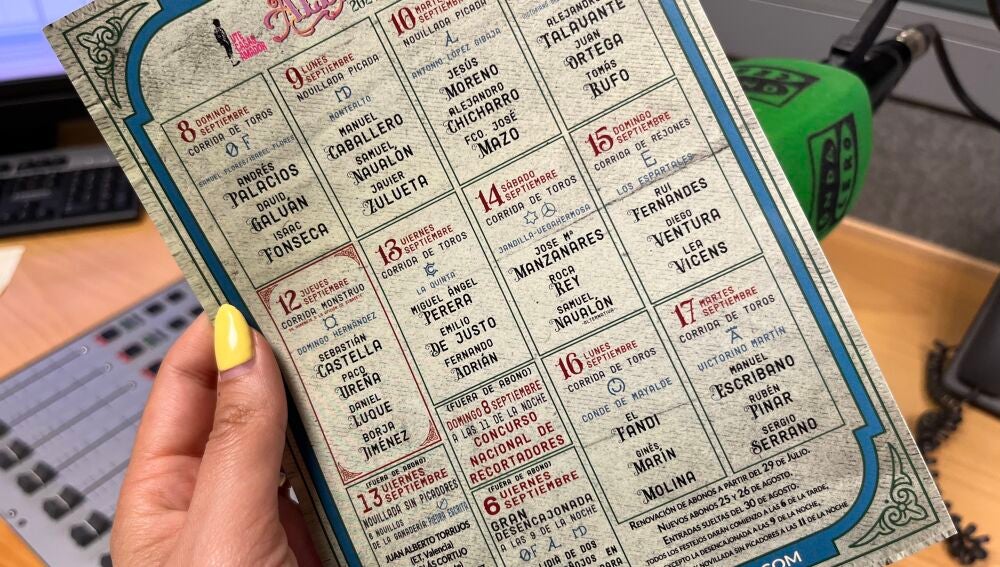 10 MARTES
SEPTIEMBRE
NOVILLADA PICADA
ANTONIO LÓPEZ GIBAJA
JESÚS
MORENO
ALEJANDRO
CHICHARRO
FCO. JOSÉ
MAZO
ALEJANDRO
TALAVANTE
JUAN
ORTEGA
TOMÁS
RUFO
9 LUNES
SEPTIEMBRE
NOVILLADA PICADA
MONTEALTO
MANUEL
CABALLERO
SAMUEL
NAVALÓN
JAVIER
ZULUETA
8 DOMINGO
SEPTIEMBRE
CORRIDA DE TOROS
SAMUEL FLORES/ISABEL FLORES
ANDRÉS
PALACIOS
DAVID
GALVÁN
ISAAC
FONSECA
12 JUEVES
SEPTIEMBRE
CORRIDA MONSTRUO
DOMINGO HERNÁNDEZ
SEBASTIÁN
CASTELLA
PACO
UREÑA
DANIEL
LUQUE
BORJA
JIMÉNEZ
13 VIERNES
SEPTIEMBRE
CORRIDA DE TOROS
LA QUINTA
MIGUEL ÁNGEL
PERERA
EMILIO
DE JUSTO
FERNANDO
ADRIÁN
14 SÁBADO
SEPTIEMBRE
CORRIDA DE TOROS
JANDILLA-VEGAHERMOSA
JOSE Mª
MANZANARES
ROCA
REY
SAMUEL
NAVALÓN
-ALTERNATIVA-
15 DOMINGO
SEPTIEMBRE
CORRIDA DE REJONES
LOS ESPARTALES
RUI
FERNANDES
DIEGO
VENTURA
LEA
VICENS
16 LUNES
SEPTIEMBRE
CORRIDA DE TOROS
CONDE DE MAYALDE
EL
FANDI
GINÉS
MARÍN
MOLINA
17 MARTES
SEPTIEMBRE
CORRIDA DE TOROS
VICTORINO MARTÍN
MANUEL
ESCRIBANO
RUBÉN
PINAR
SERGIO
SERRANO
(FUERA DE ABONO)
DOMINGO 8 SEPTIEMBRE
A LAS 11 DE LA NOCHE
CONCURSO
NACIONAL DE
RECORTADORES
(FUERA DE ABONO)
13 VIERNES
SEPTIEMBRE
NOVILLADA SIN PICADORES
6 NOVILLOS
DE LA GANADERIA
JUAN ALBERTO TORRIJOS
(ET. Valencia)
CORTIJO
(FUERA DE ABONO)
6 VIERNES
SEPTIEMBRE
GRAN
DESENCAJONADA
A LAS 9 DE LA NOCHE
LIDIA DE DOS
EN
RENOVACIÓN DE ABONOS A PARTIR DEL 29 DE JULIO.
NUEVOS ABONOS 25 Y 26 DE AGOSTO.
ENTRADAS SUELTAS DEL 30 DE AGOSTO.
TODOS LOS FESTEJOS DARÁN COMIENZO A LAS 6 DE LA TARDE,
EXCEPTO LA DESENCAJONADA A LAS 9 DE LA NOCHE,
NOVILLADA SIN PICADORES A LAS 11 DE LA NOCHE
.COM
ONDA
CERO